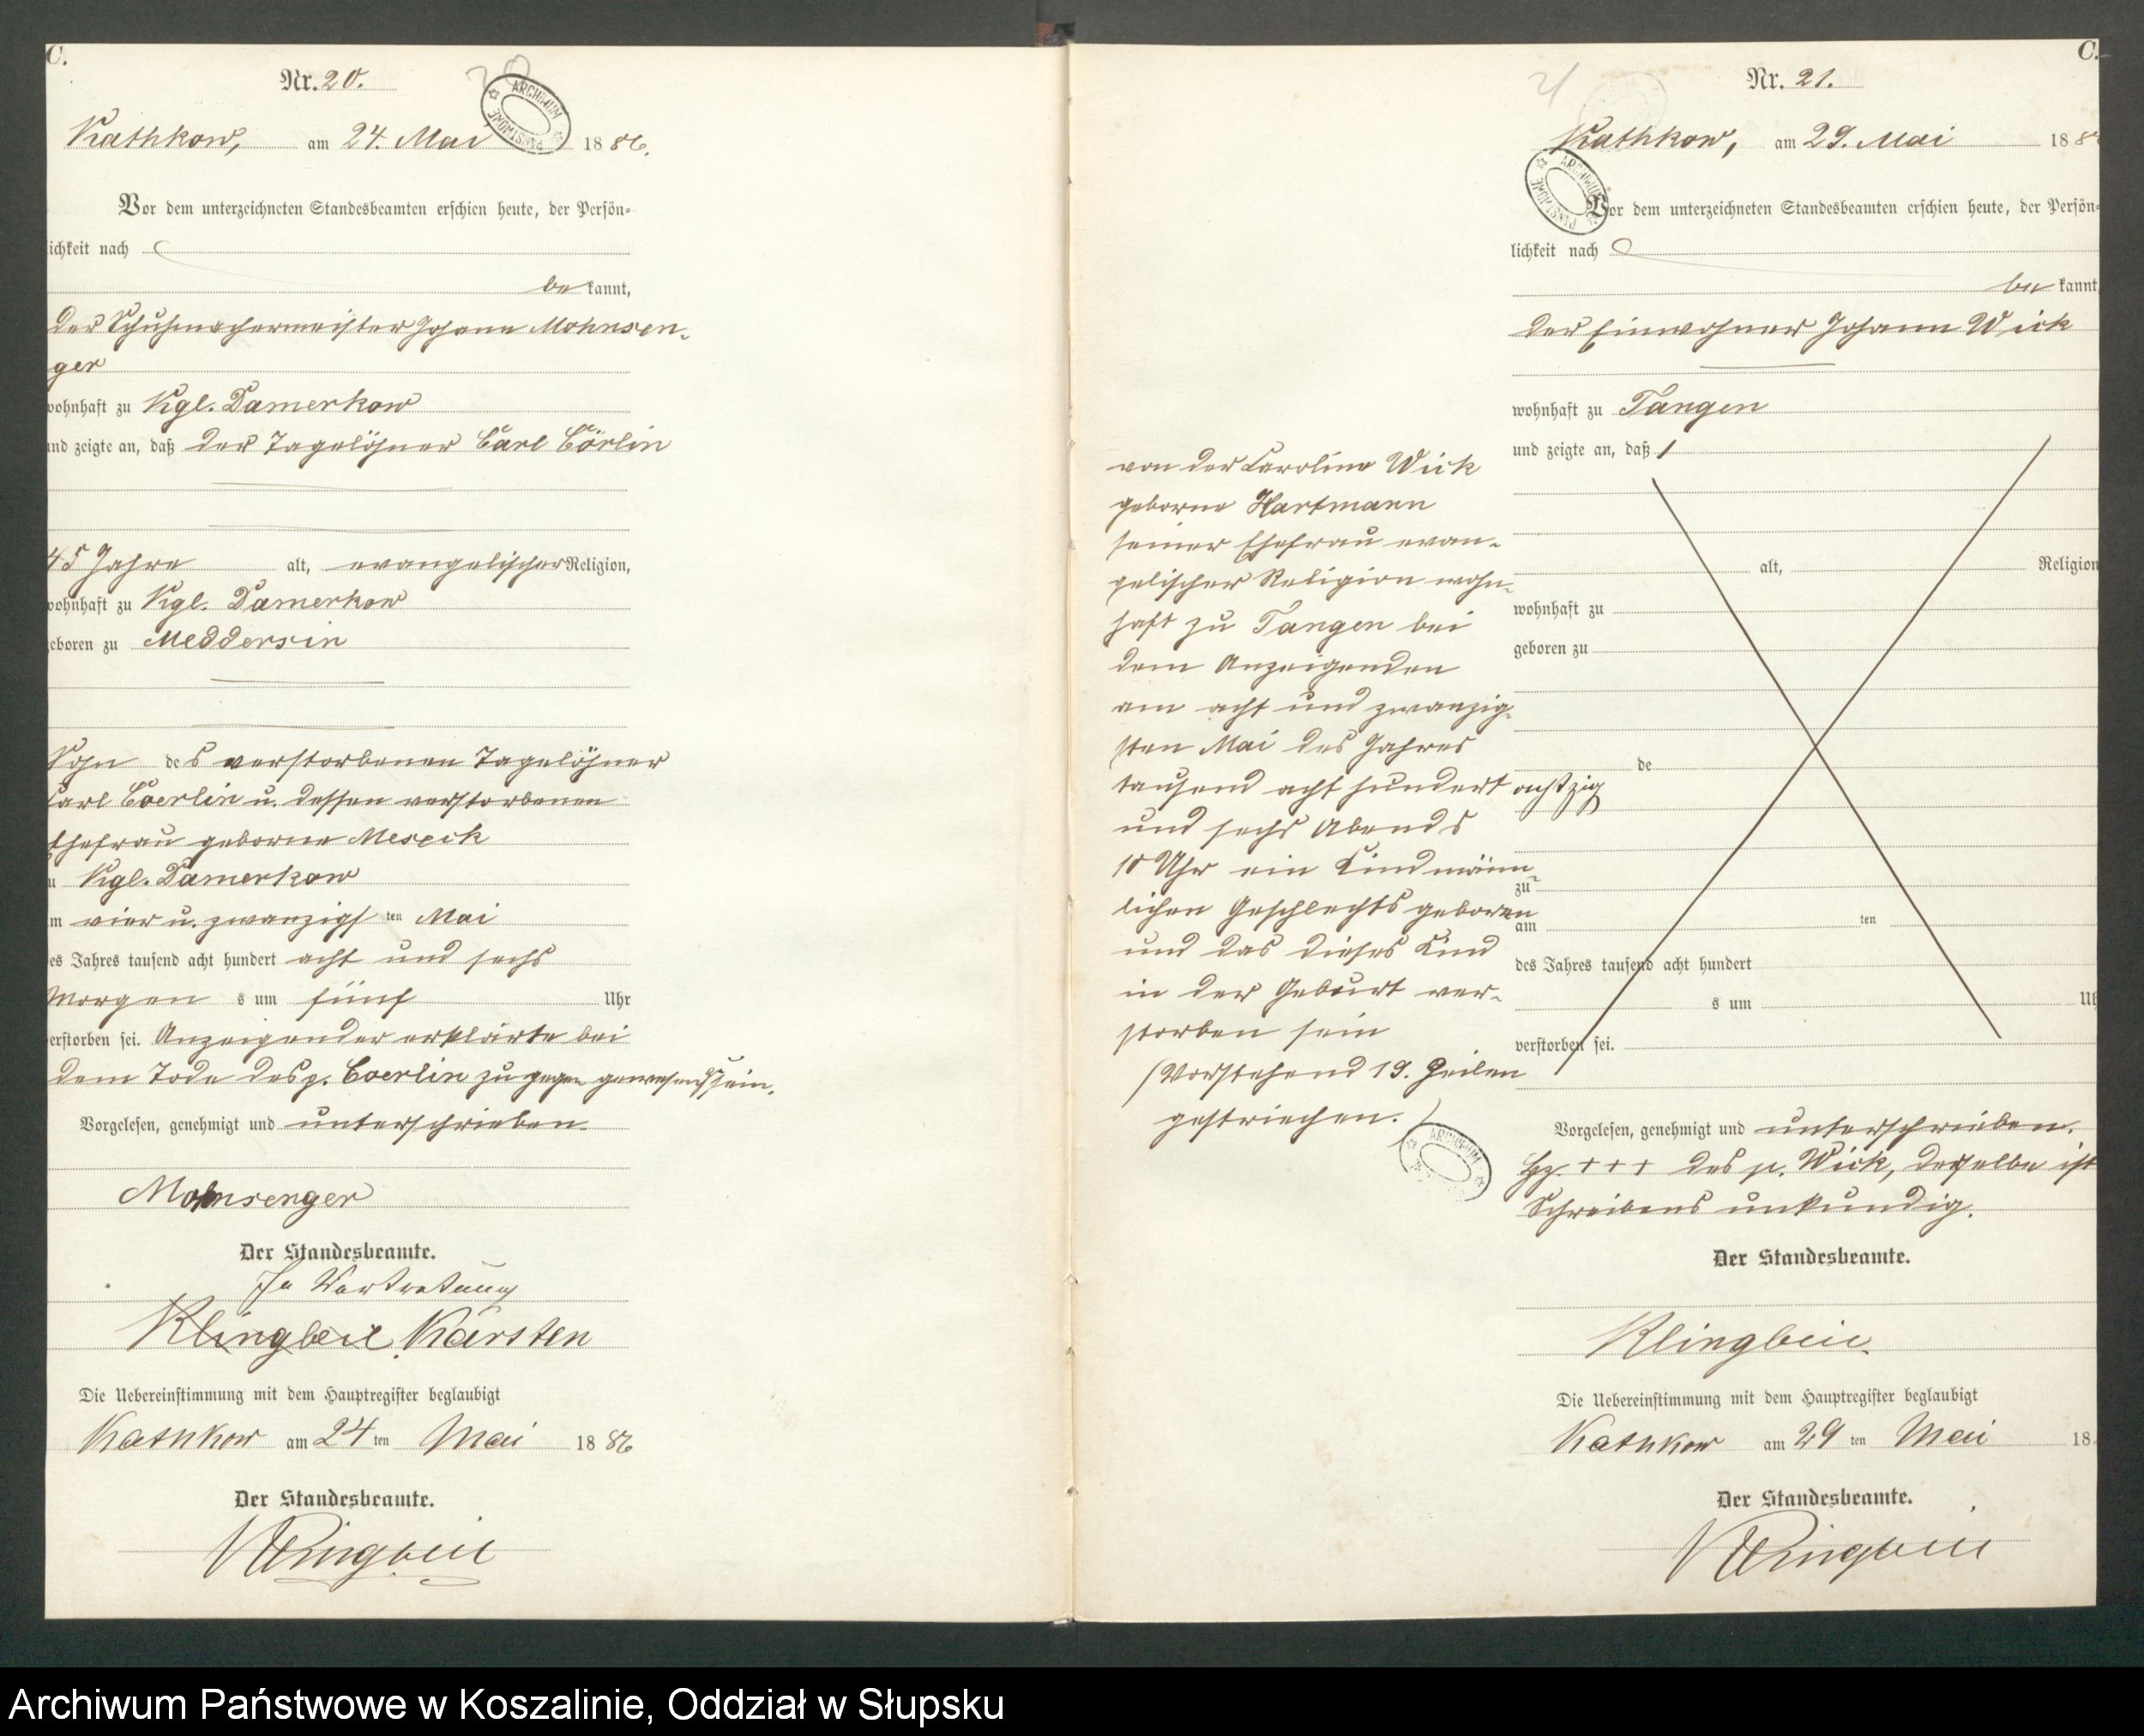 C.
Nr. 20.
20
ARCHIWUM PAŃSTWOWE
Kathkow, am 24. Mai 1886.
Vor dem unterzeichneten Standesbeamten erschien heute, der Persön-
lichkeit nach
be kannt,
der Schuhmachermeister Johann Mohnsen-
ger
wohnhaft zu Kgl. Damerkow
und zeigte an, daß der Tagelöhner Carl Cörlin
45 Jahre alt, evangelischer Religion,
wohnhaft zu Kgl. Damerkow
geboren zu Meddersin
Sohn des verstorbenen Tagelöhner
Carl Coerlin u. dessen verstorbenen
Ehefrau geborne Meseck
zu Kgl. Damerkow
am vier u. zwanzigsten Mai
des Jahres tausend acht hundert acht und sechs
Morgens um fünf Uhr
verstorben sei. Anzeigender erklärte bei
dem Tode des p. Coerlin zugegen gewesen zu sein.
Vorgelesen, genehmigt und unterschrieben
Mohnsenger
Der Standesbeamte.
In Vertretung
Klingbeil Karsten
Die Uebereinstimmung mit dem Hauptregister beglaubigt
Kathkow am 24ten Mai 1886
Der Standesbeamte.
Klingbeil
C.
Nr. 21.
21
Kathkow, am 29. Mai 188
ARCHIWUM PAŃSTWOWE
Vor dem unterzeichneten Standesbeamten erschien heute, der Persön-
lichkeit nach
be kannt
der Einwohner Johann Wick
wohnhaft zu Tangen
und zeigte an, daß
von der Caroline Wick
geborne Hartmann
seiner Ehefrau evan-
gelischer Religion wohn-
haft zu Tangen bei
dem Anzeigenden
am acht und zwanzig-
sten Mai des Jahres
tausend acht hundert achtzig
und sechs Abends
10 Uhr ein Kind männ-
lichen Geschlechts geboren
und das dieses Kind
in der Geburt ver-
storben sein
(Vorstehend 19. Zeilen
gestrichen.)
ARCHIWUM
alt, Religion
wohnhaft zu
geboren zu
de
zu
am ten
des Jahres tausend acht hundert
s um Uh
verstorben sei.
Vorgelesen, genehmigt und unterschrieben.
Hz. +++ des p. Wick, derselbe ist
Schreibens unkundig.
Der Standesbeamte.
Klingbeil.
Die Uebereinstimmung mit dem Hauptregister beglaubigt
Kathkow am 29ten Mai 18
Der Standesbeamte.
Klingbeil
Archiwum Państwowe w Koszalinie, Oddział w Słupsku